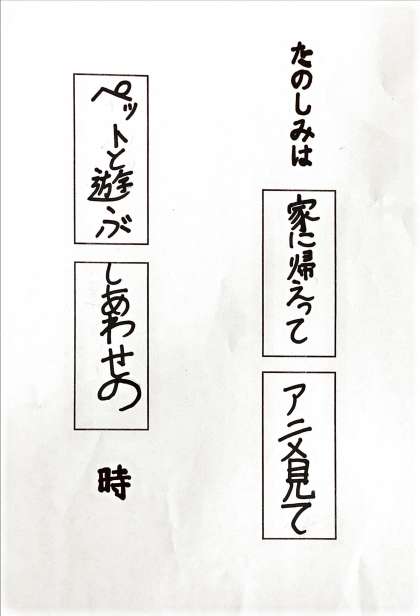 たのしみは 家に帰えって アニメ見て
ペットと遊ぶ しあわせの 時